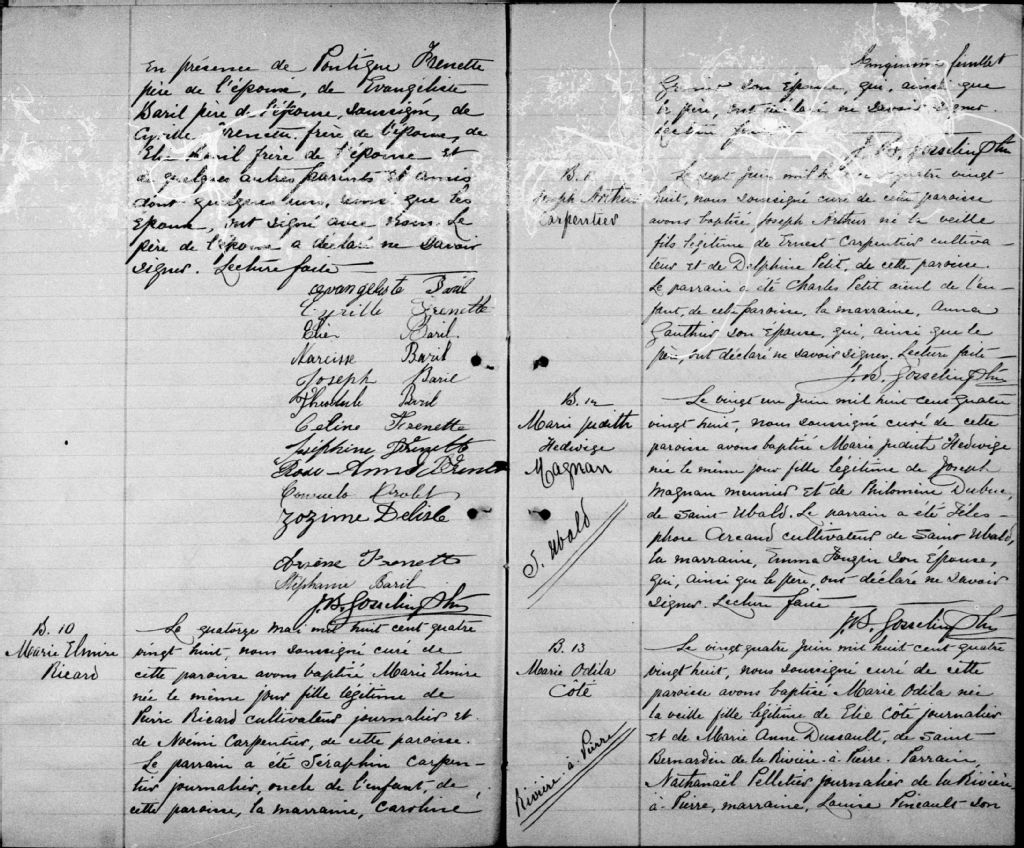 En présence de Pontique Frenette
père de l'époux, de Evangéliste
Baril père de l'épouse, soussigné, de
Cyrille Frenette frère de l'époux, de
Elie Baril frère de l'épouse et
de quelques autres parents et amis
dont quelques uns, ainsi que les
Epoux, ont signé avec nous. Le
père de l'époux a déclaré ne savoir
signer. Lecture faite
Evangeliste Baril
Cyrille Frenette
Elie Baril
Narcisse Baril
Joseph Baril
Baril
Celine Frenette
Joséphine Frenette
Rose-Anna Frenette
Drolet
Zozime Delisle
Arsène Frenette
Stéphanie Baril
J. B. Gosselin Ptre
B. 10
Marie Elmire
Ricard
Le quatorze mai mil huit cent quatre
vingt huit, nous soussigné curé de
cette paroisse avons baptisé Marie Elmire
née le même jour fille légitime de
Pierre Ricard cultivateur journalier et
de Noémi Carpentier, de cette paroisse.
Le parrain a été Séraphin Carpen-
tier journalier, oncle de l'enfant, de
cette paroisse, la marraine, Caroline
feuillet
Grenier son Épouse, qui, ainsi que
le père, ont déclaré ne savoir signer.
Lecture faite
J. B. Gosselin Ptre
B.
Joseph Arthur
Carpentier
Le sept juin mil huit cent quatre vingt
huit, nous soussigné curé de cette paroisse
avons baptisé Joseph Arthur né la veille
fils légitime de Ernest Carpentier cultiva-
teur et de Delphine Petit, de cette paroisse.
Le parrain a été Charles Petit aïeul de l'en-
fant, de cette paroisse, la marraine, Anna
Gauthier son Épouse, qui, ainsi que le
père, ont déclaré ne savoir signer. Lecture faite
J. B. Gosselin Ptre
B. 12
Marie judith
Hedwige
Magnan
S. Ubald
Le vingt un Juin mil huit cent quatre
vingt huit, nous soussigné curé de cette
paroisse avons baptisé Marie judith Hedwige
née le même jour fille légitime de Joseph
Magnan meunier et de Philomène Dubuc,
de Saint-Ubald. Le parrain a été Téles-
phore Arcand cultivateur de Saint Ubald,
la marraine, Emma Fouzin son Epouse,
qui, ainsi que le père, ont déclaré ne savoir
signer. Lecture faite
J. B. Gosselin Ptre
B. 13
Marie Odila
Côté
Rivière-à-Pierre
Le vingt quatre Juin mil huit cent quatre
vingt huit, nous soussigné curé de cette
paroisse avons baptisé Marie Odila née
la veille fille légitime de Elie Côté journalier
et de Marie Anne Dussault, de Saint-
Bernardin de la Rivière-à-Pierre. Parrain
Nathanaël Pelletier journalier de la Rivière
à Pierre, marraine, Louise Pineault son